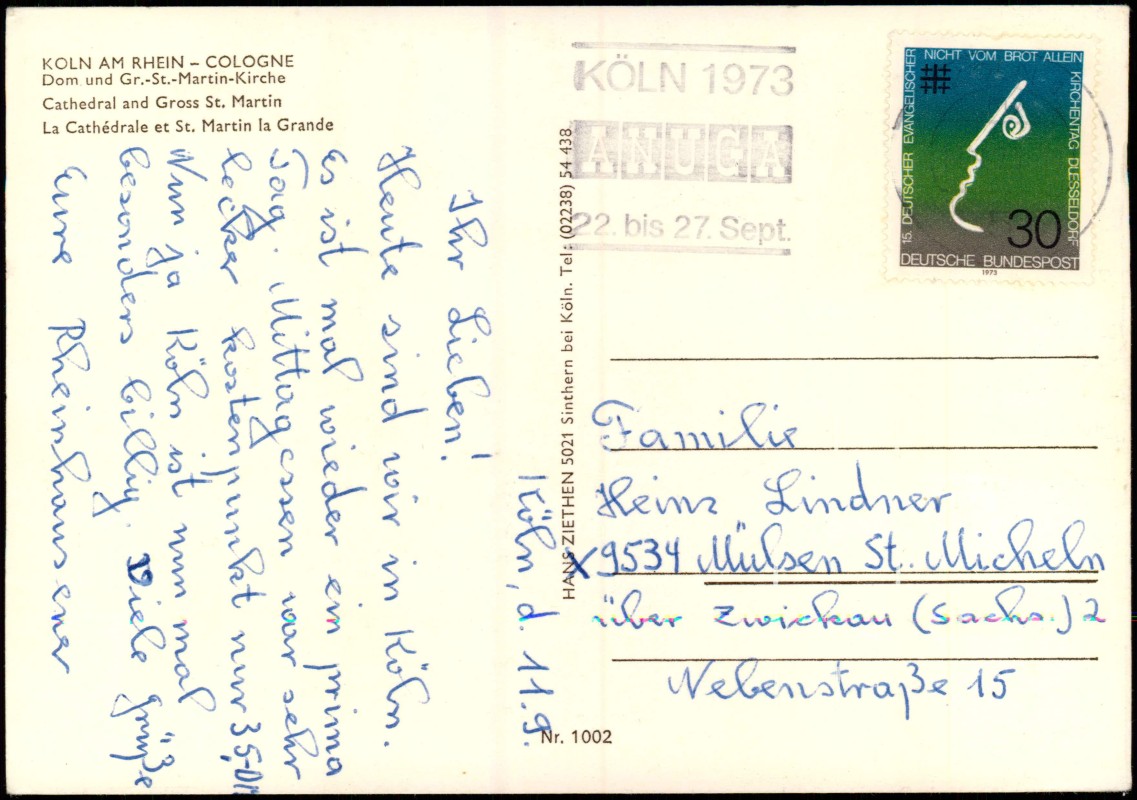 KOLN AM RHEIN – COLOGNE
Dom und Gr.-St.-Martin-Kirche
Cathedral and Gross St. Martin
La Cathédrale et St. Martin la Grande
Köln, d. 11.9.
Ihr Lieben!
Heute sind wir in Köln.
Es ist mal wieder ein prima
Tag. Mittagessen war sehr
lecker kostenpunkt nur 35,-DM
Nun ja Köln ist nun mal
besonders billig. Viele Grüße
Eure Rheinhausener
HANS ZIETHEN 5021 Sinthern bei Köln. Tel: (02238) 54 438
Nr. 1002
KÖLN 1973
ANUGA
22. bis 27. Sept.
15. DEUTSCHER EVANGELISCHER
NICHT VOM BROT ALLEIN
KIRCHENTAG DUESSELDORF
30
DEUTSCHE BUNDESPOST
1973
Familie
Heinz Lindner
X 9534 Mülsen St. Micheln
über Zwickau (Sachs.) 2
Nebenstraße 15